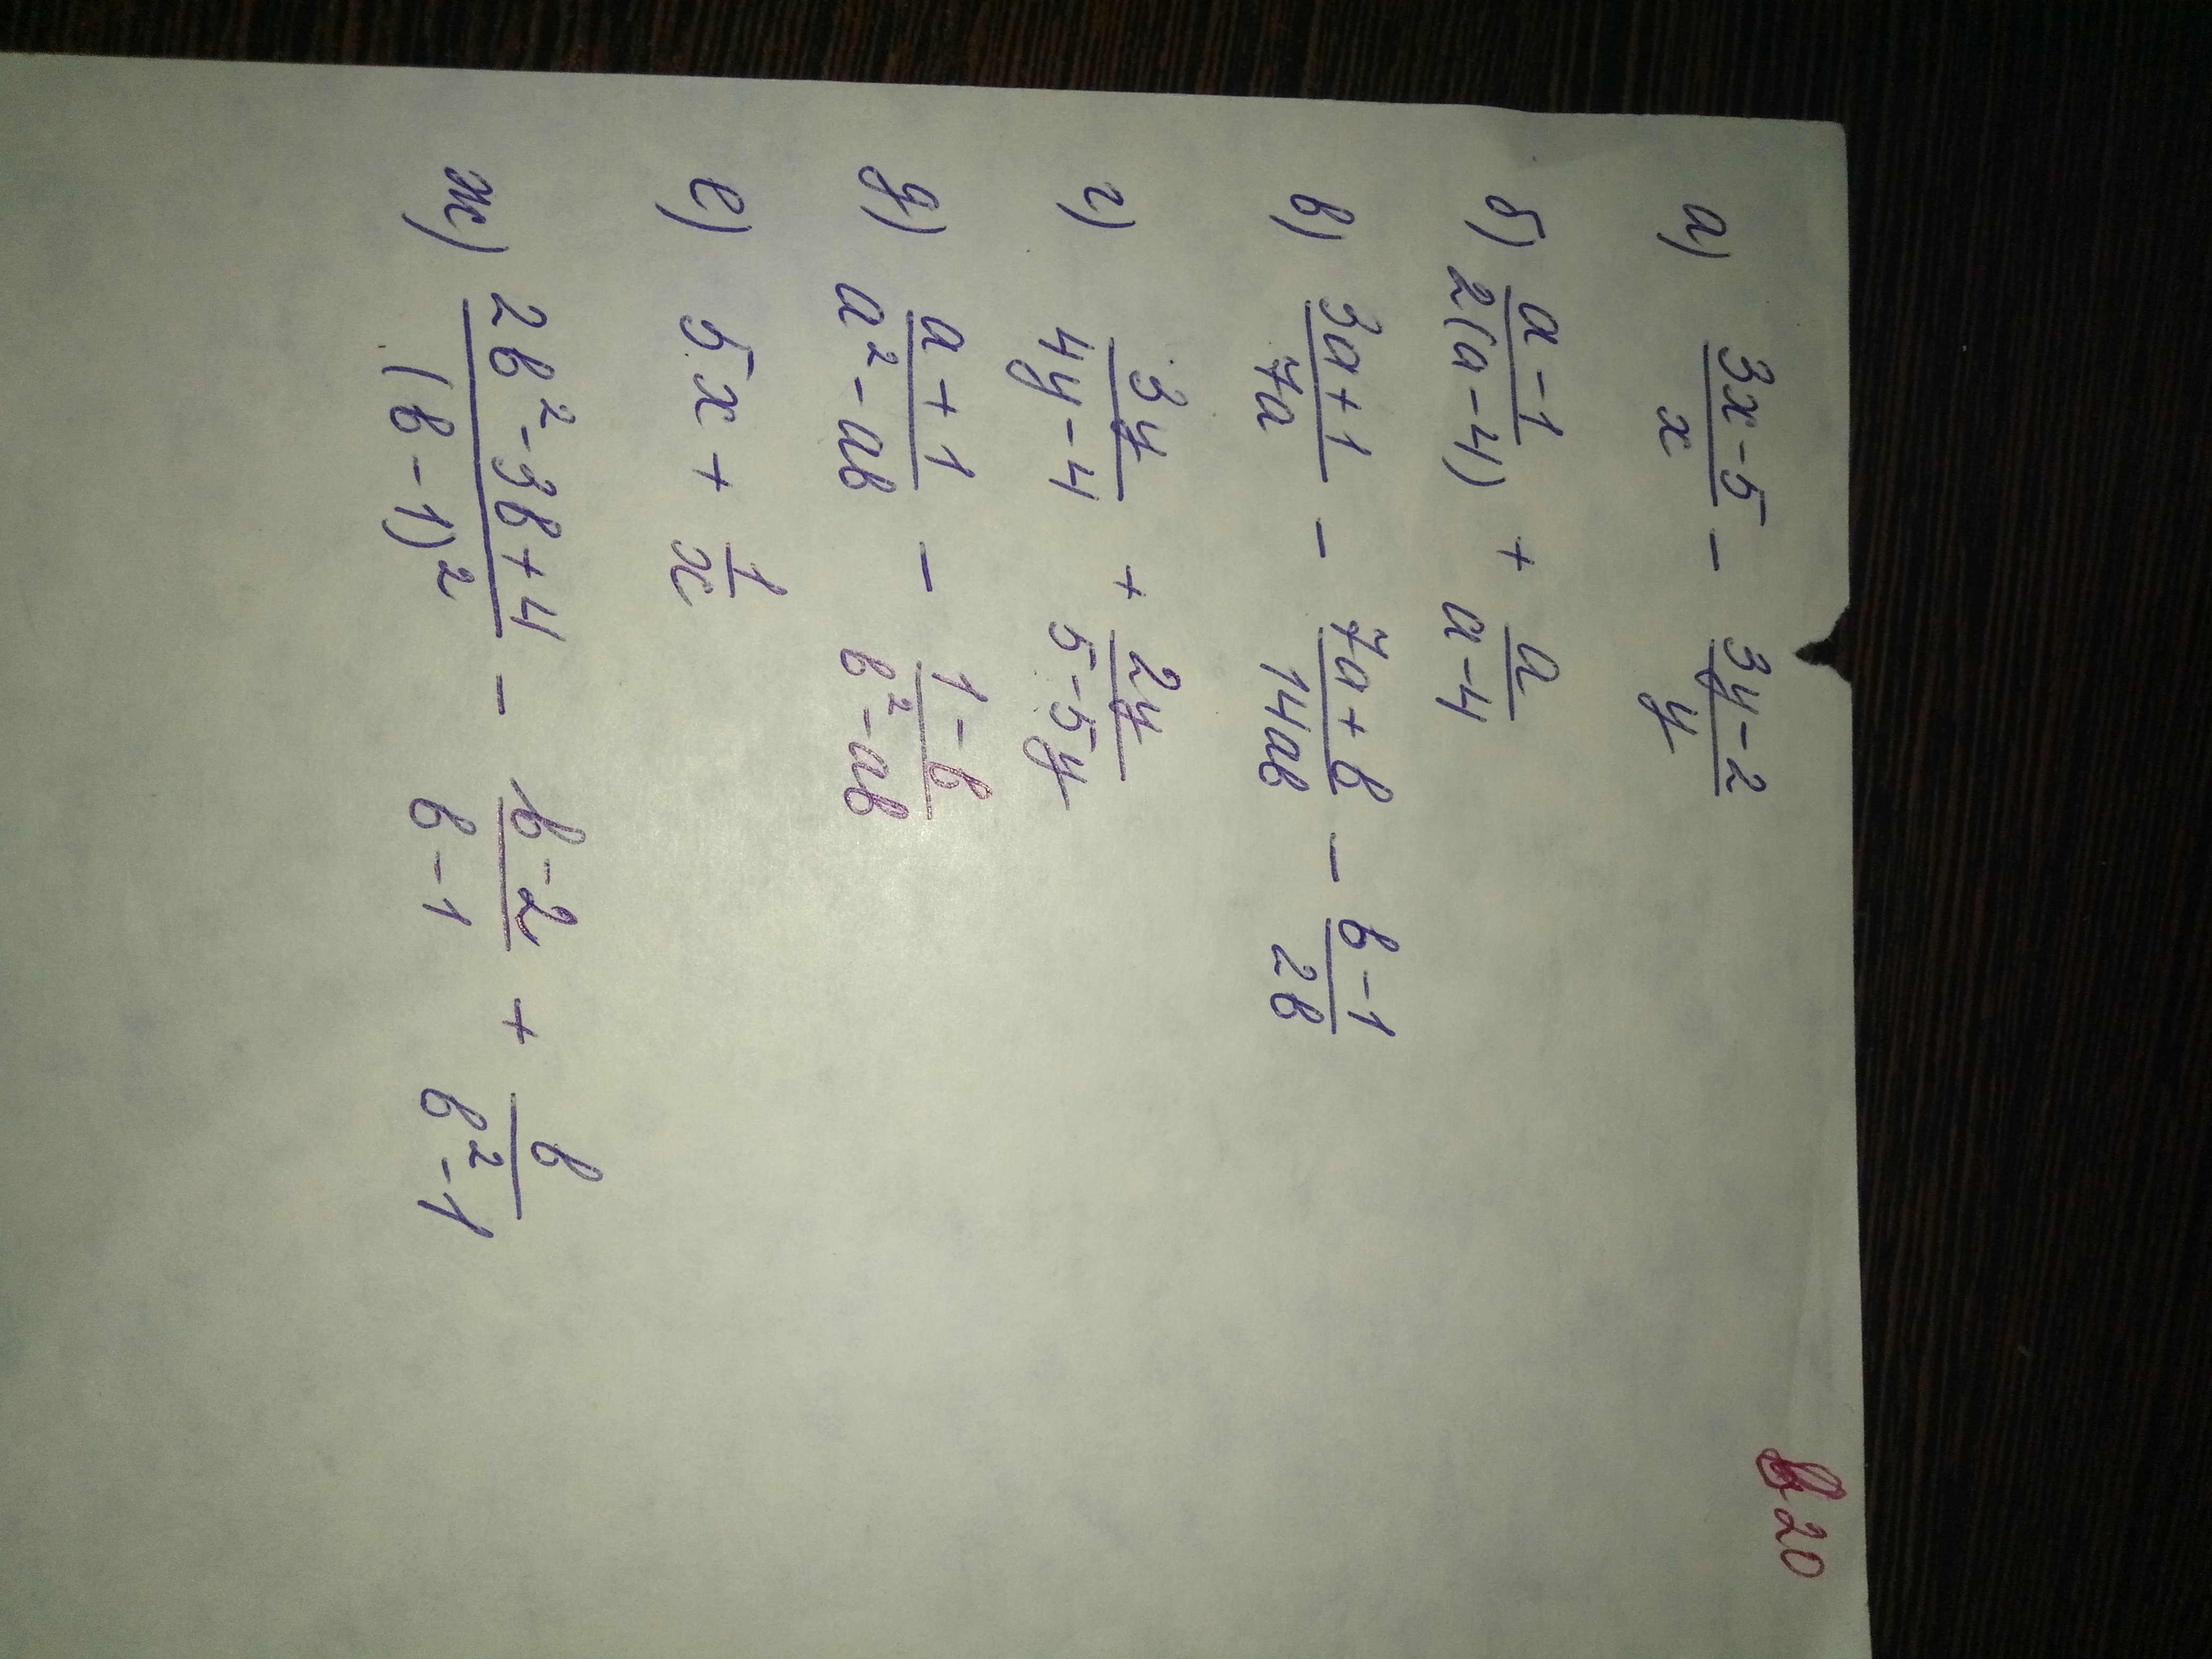 в 20
а) (3x-5)/x - (3y-2)/y
б) (a-1)/(2(a-4)) + a/(a-4)
в) (3a+1)/(7a) - (7a+в)/(14aв) - (в-1)/(2в)
г) 3y/(4y-4) + 2y/(5-5y)
д) (a+1)/(a²-aв) - (1-в)/(в²-aв)
е) 5x + 1/x
ж) (2в²-3в+4)/(в-1)² - (в-2)/(в-1) + в/(в²-1)